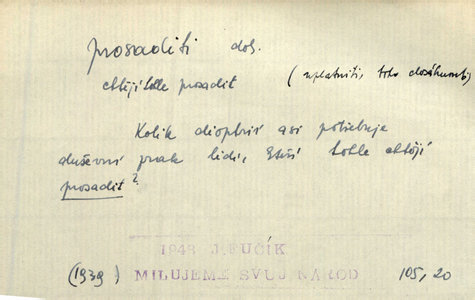 prosaditi dok.
chtějí tohle prosadit
(uplatniti, toho dosáhnouti)
Kolik dioptrií asi potřebuje
duševní zrak lidí, kteří tohle chtějí
prosadit?
1948 J. FUČÍK
(1939) MILUJEME SVŮJ NÁROD 105, 20